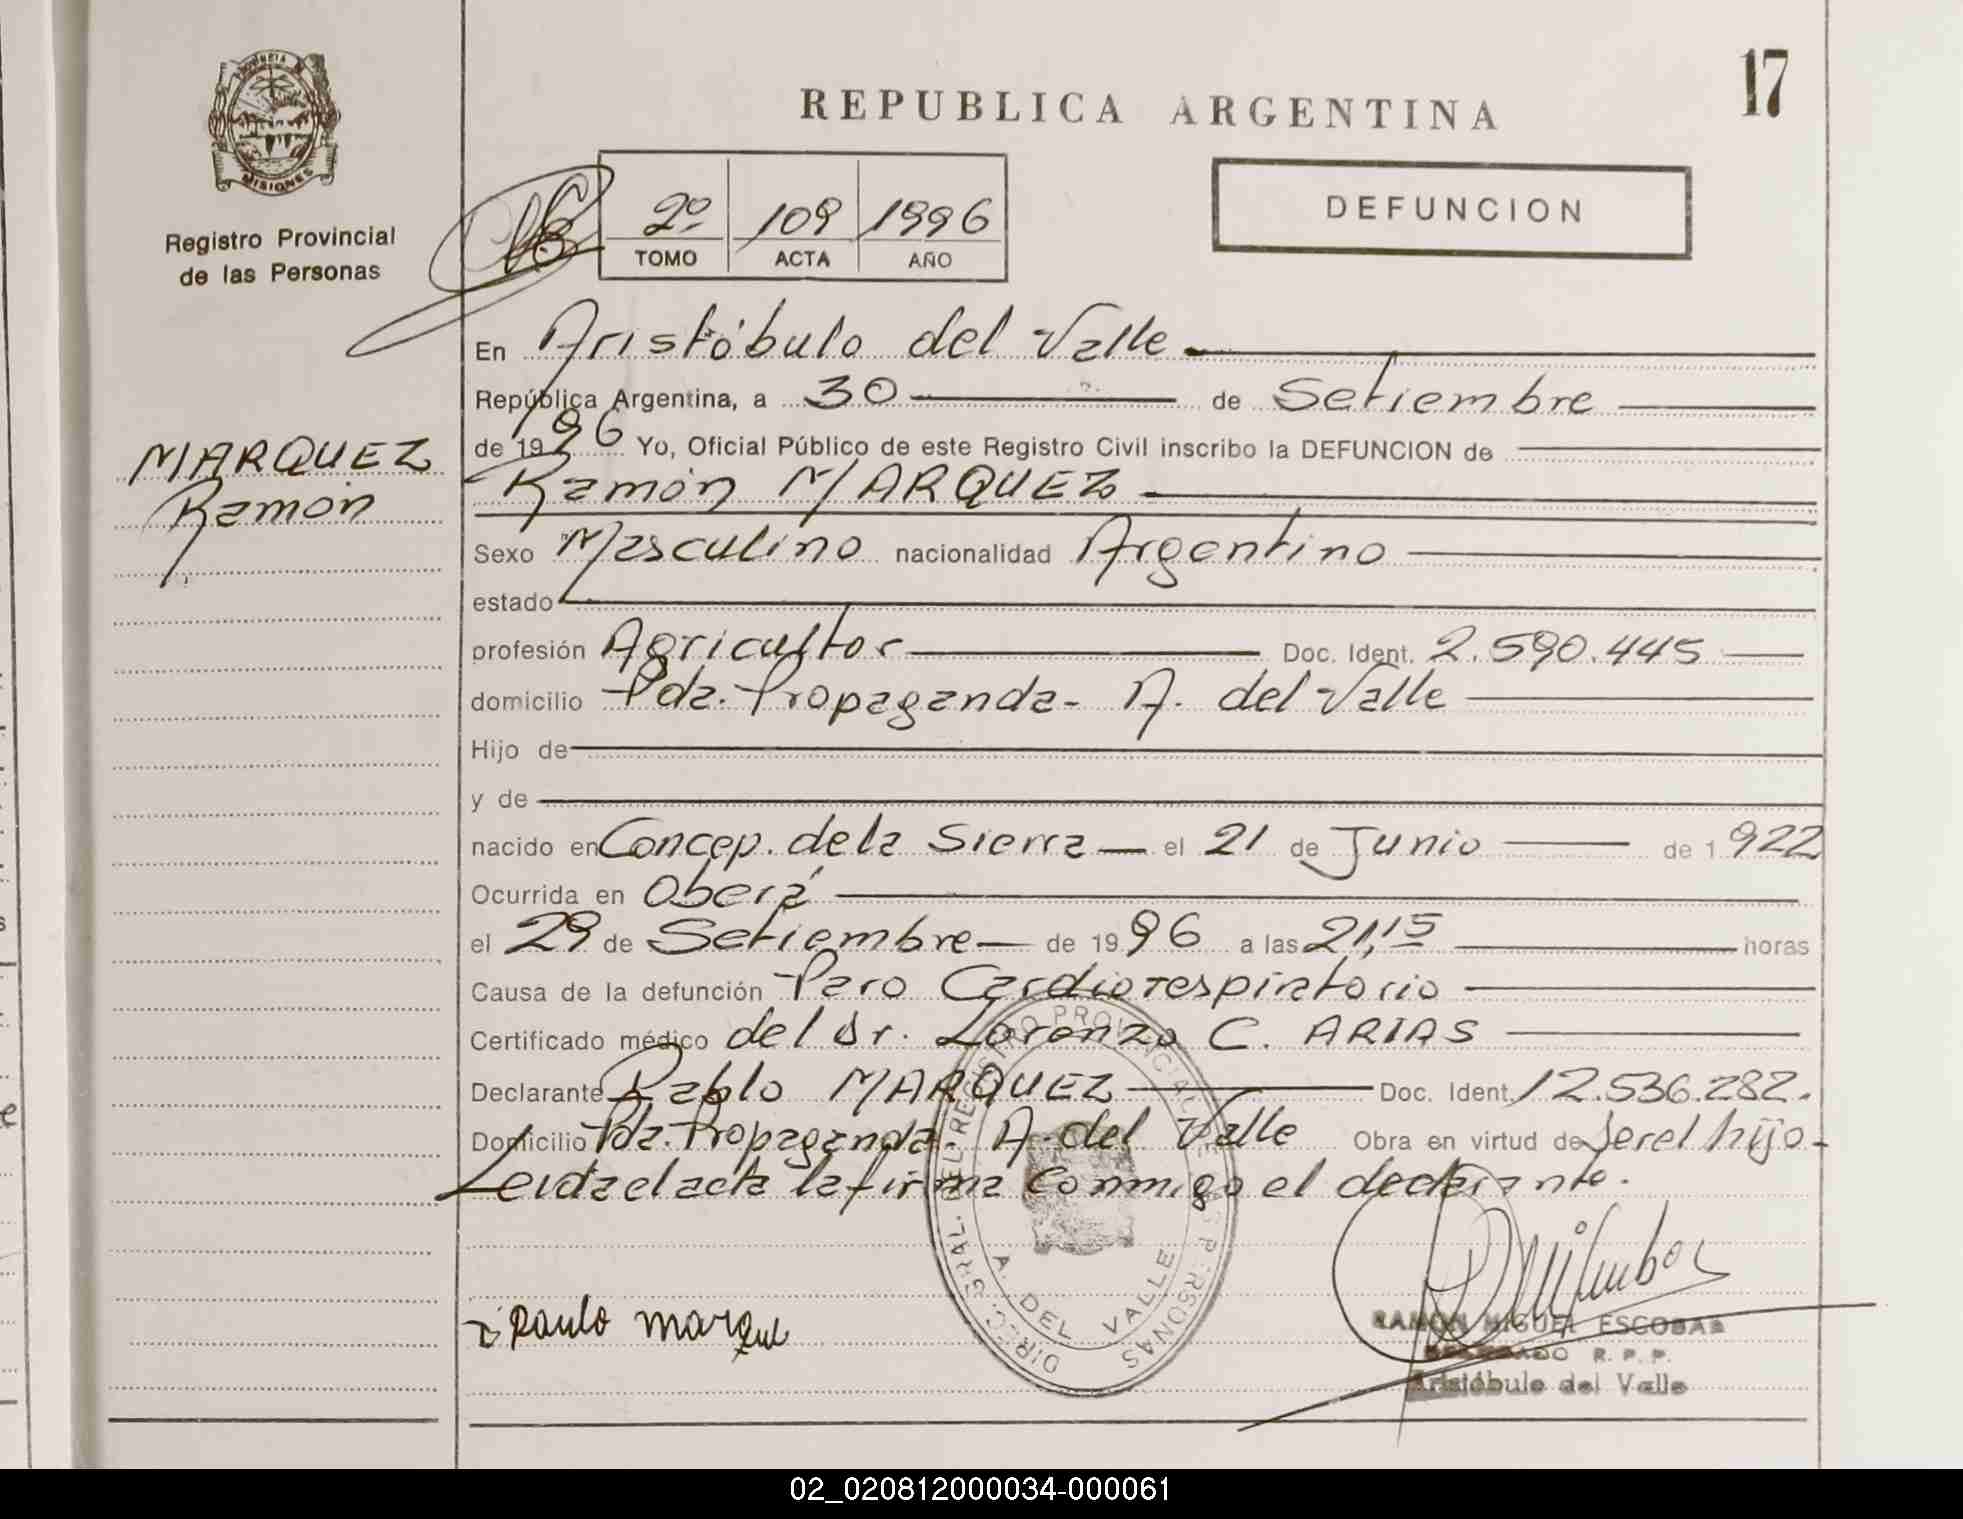 PROVINCIA DE
MISIONES
Registro Provincial
de las Personas
17
REPUBLICA ARGENTINA
2º 109 1996
TOMO ACTA AÑO
DEFUNCION
MARQUEZ
Ramón
En Aristóbulo del Valle
República Argentina, a 30 de Setiembre
de 1996 Yo, Oficial Público de este Registro Civil inscribo la DEFUNCION de
Ramón MARQUEZ
Sexo Masculino nacionalidad Argentino
estado
profesión Agricultor Doc. Ident. 2.590.445
domicilio Pda. Propaganda- A. del Valle
Hijo de
y de
nacido en Concep. de la Sierra el 21 de Junio de 1922
Ocurrida en Oberá
el 29 de Setiembre de 1996 a las 21,15 horas
Causa de la defunción Paro Cardiorespiratorio
Certificado médico del Dr. Lorenzo C. ARIAS
Declarante Pablo MARQUEZ Doc. Ident. 12.536.282.
Domicilio Pda. Propaganda. A. del Valle Obra en virtud de ser el hijo.
Leida el acta la firma conmigo el declarante.
DIREC. GRAL. DEL REGISTRO PROVINCIAL DE LAS PERSONAS
A. DEL VALLE
RAMON MIGUEL ESCOBAR
DELEGADO R. P. P.
Aristóbulo del Valle
02_020812000034-000061